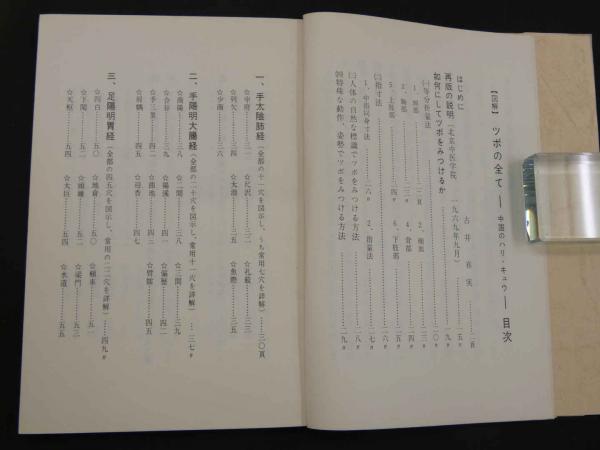 【図解】 ツボの全て ── 中国のハリ・キュウ ── 目次
はじめに
再版の説明（北京中医学院 一九六九年九月）
如何にしてツボをみつけるか
㈠等分折量法
1、頭部
2、
3、胸部
4、背部
5、上肢部
6、下肢部
㈡指寸法
1、中指同身寸法
2、指量法
㈢人体の自然な標識でツボをみつける方法
㈣特殊な動作、姿勢でツボをみつける方法
一、手太陰肺経（全部の十一穴を図示し、うち常用七穴を詳解）……三〇頁
☆中府……三一 ☆尺沢……三二 ☆孔最……三三
☆列欠……三四 ☆太淵……三五 ☆魚際……三五
☆少商……三六
二、手陽明大腸経（全部の二十穴を図示し、常用十一穴を詳解）……三七〃
☆商陽……三八 ☆二間……三八 ☆三間……三九
☆合谷……三九 ☆陽溪 ☆偏歴
☆手三里……四二 ☆曲池 ☆臂臑……四五
☆肩髃……四五 ☆迎香……四七
三、足陽明胃経（全部の四五穴を図示し、常用の二二穴を詳解）……四九〃
☆四白……五〇 ☆地倉……五〇 ☆頰車……五一
☆下関 ☆頭維 ☆梁門……五三
☆天枢……五四 ☆大巨……五四 ☆水道……五五